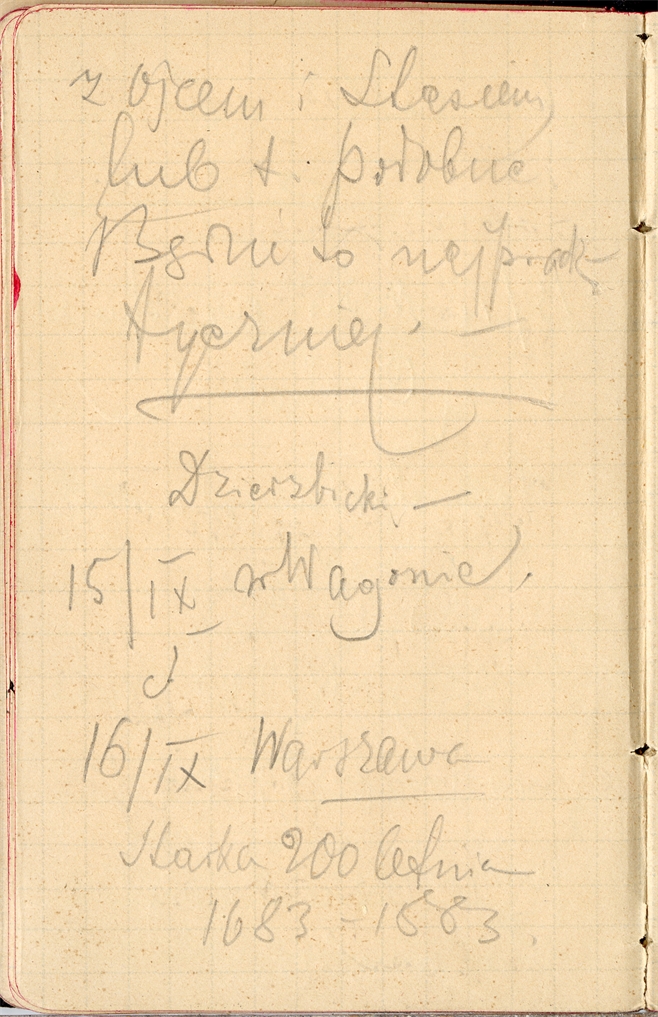 z Ojcem i Stasiem
lub t. podobne
Będzie to najprak-
tyczniej. —
Dzierzbicki —
15/IX w Wagonie.
16/IX Warszawa
Starka 200 letnia
1683 - 1883.